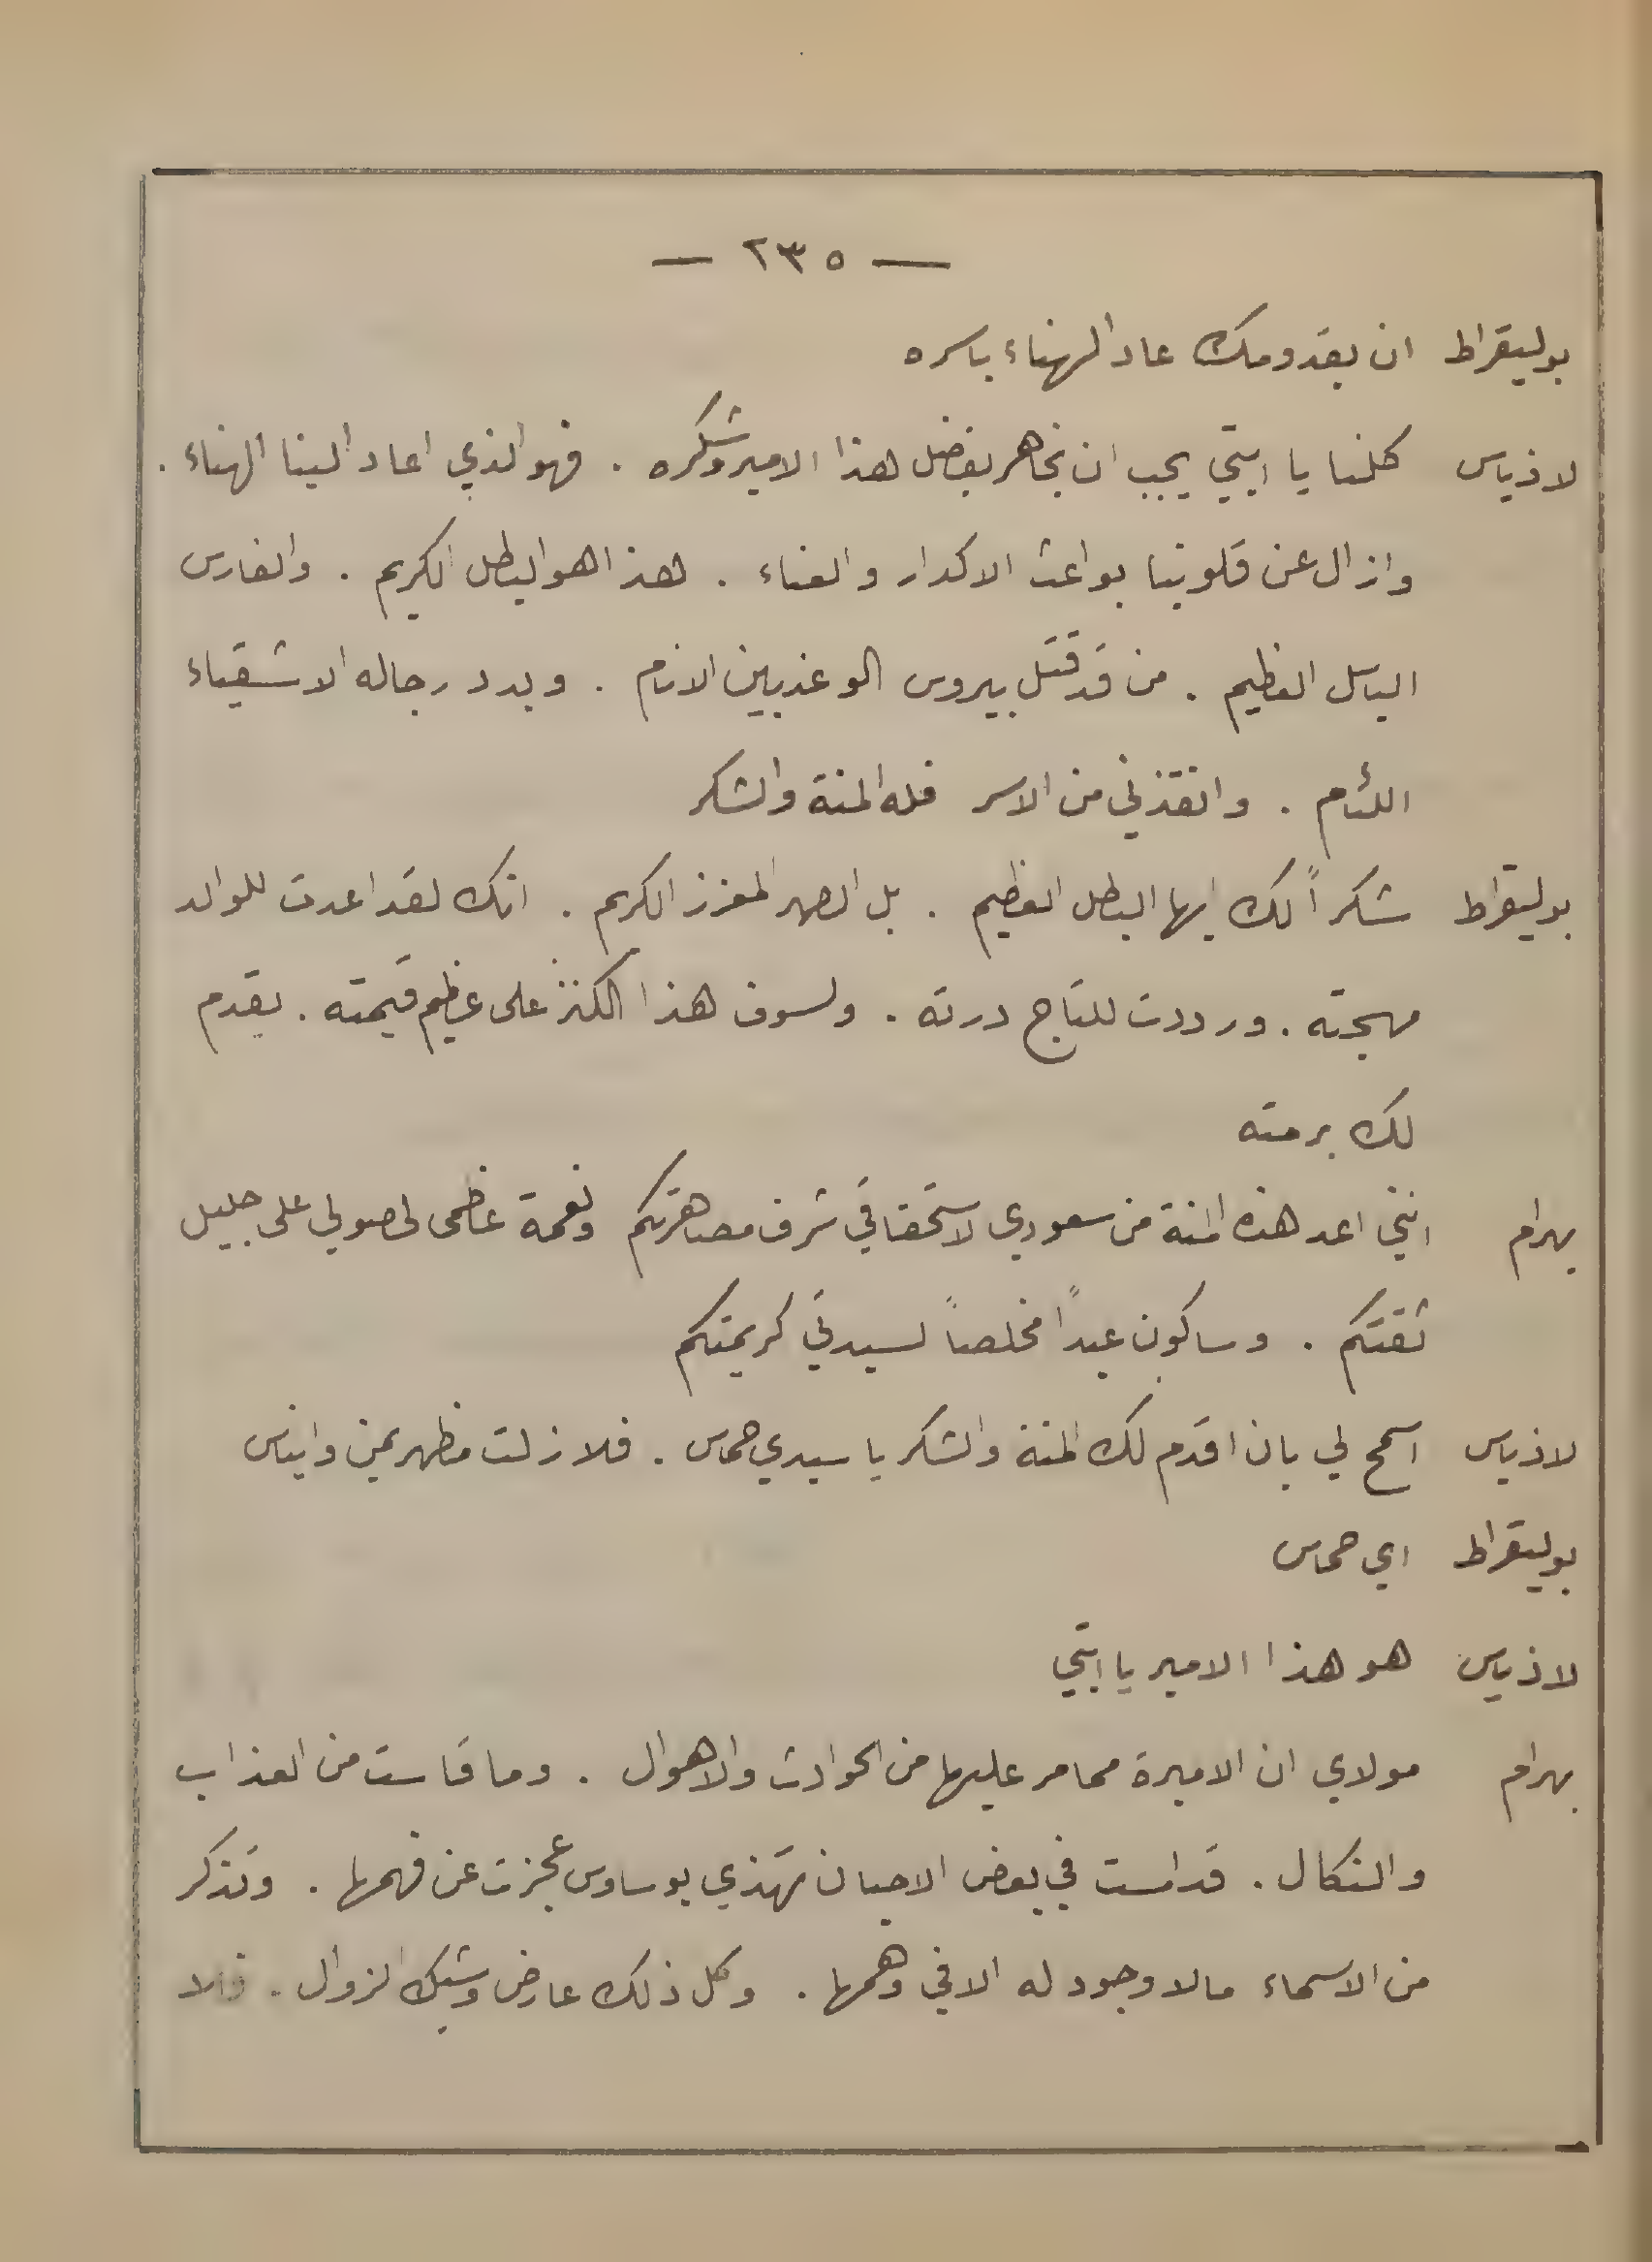 — ٢٣٥ —
بوليقراط ان بقدومك عاد الهناء باسره
لاذياس كلنا يا ابتي يجب ان نجاهر بفضل هذا الامير وشكره . فهو الذي اعاد الينا الهناء .
وازال عن قلوبنا بواعث الاكدار والعناء . هذا هو البطل الكريم . والفارس
الباسل العظيم . من قد قتل بيروس الوغد بين الانام . وبدد رجاله الاشقياء
اللئام . وانقذني من الاسر فله المنة والشكر
بوليقراط شكراً لك ايها البطل العظيم . بل الصهر المعزز الكريم . انك لقد اعدت للوالد
مهجته . ورددت للتاج درته . ولسوف هذا الكنز على عظيم قيمته . يقدم
لك برمته
بهرام انني اعد هذه المنة من سعودي لاستحقاقي شرف مصاهرتكم ونعمة عظمى لحصولي على جليل
ثقتكم . وساكون عبداً مخلصاً لسيدتي كريمتكم
لاذياس اسمح لي بان اقدم لك المنة والشكر يا سيدي حماس . فلا زلت مظهر يمن وايناس
بوليقراط اي حماس
لاذياس هو هذا الامير يا ابتي
بهرام مولاي ان الاميرة مما مر عليها من الحوادث والاهوال . وما قاست من العذاب
والنكال . قد امست في بعض الاحيان تهذي بوساوس عجزت عن فهمها . وتذكر
من الاسماء مالا وجود له الا في وهمها . وكل ذلك عارض وشيك الزوال . فلا